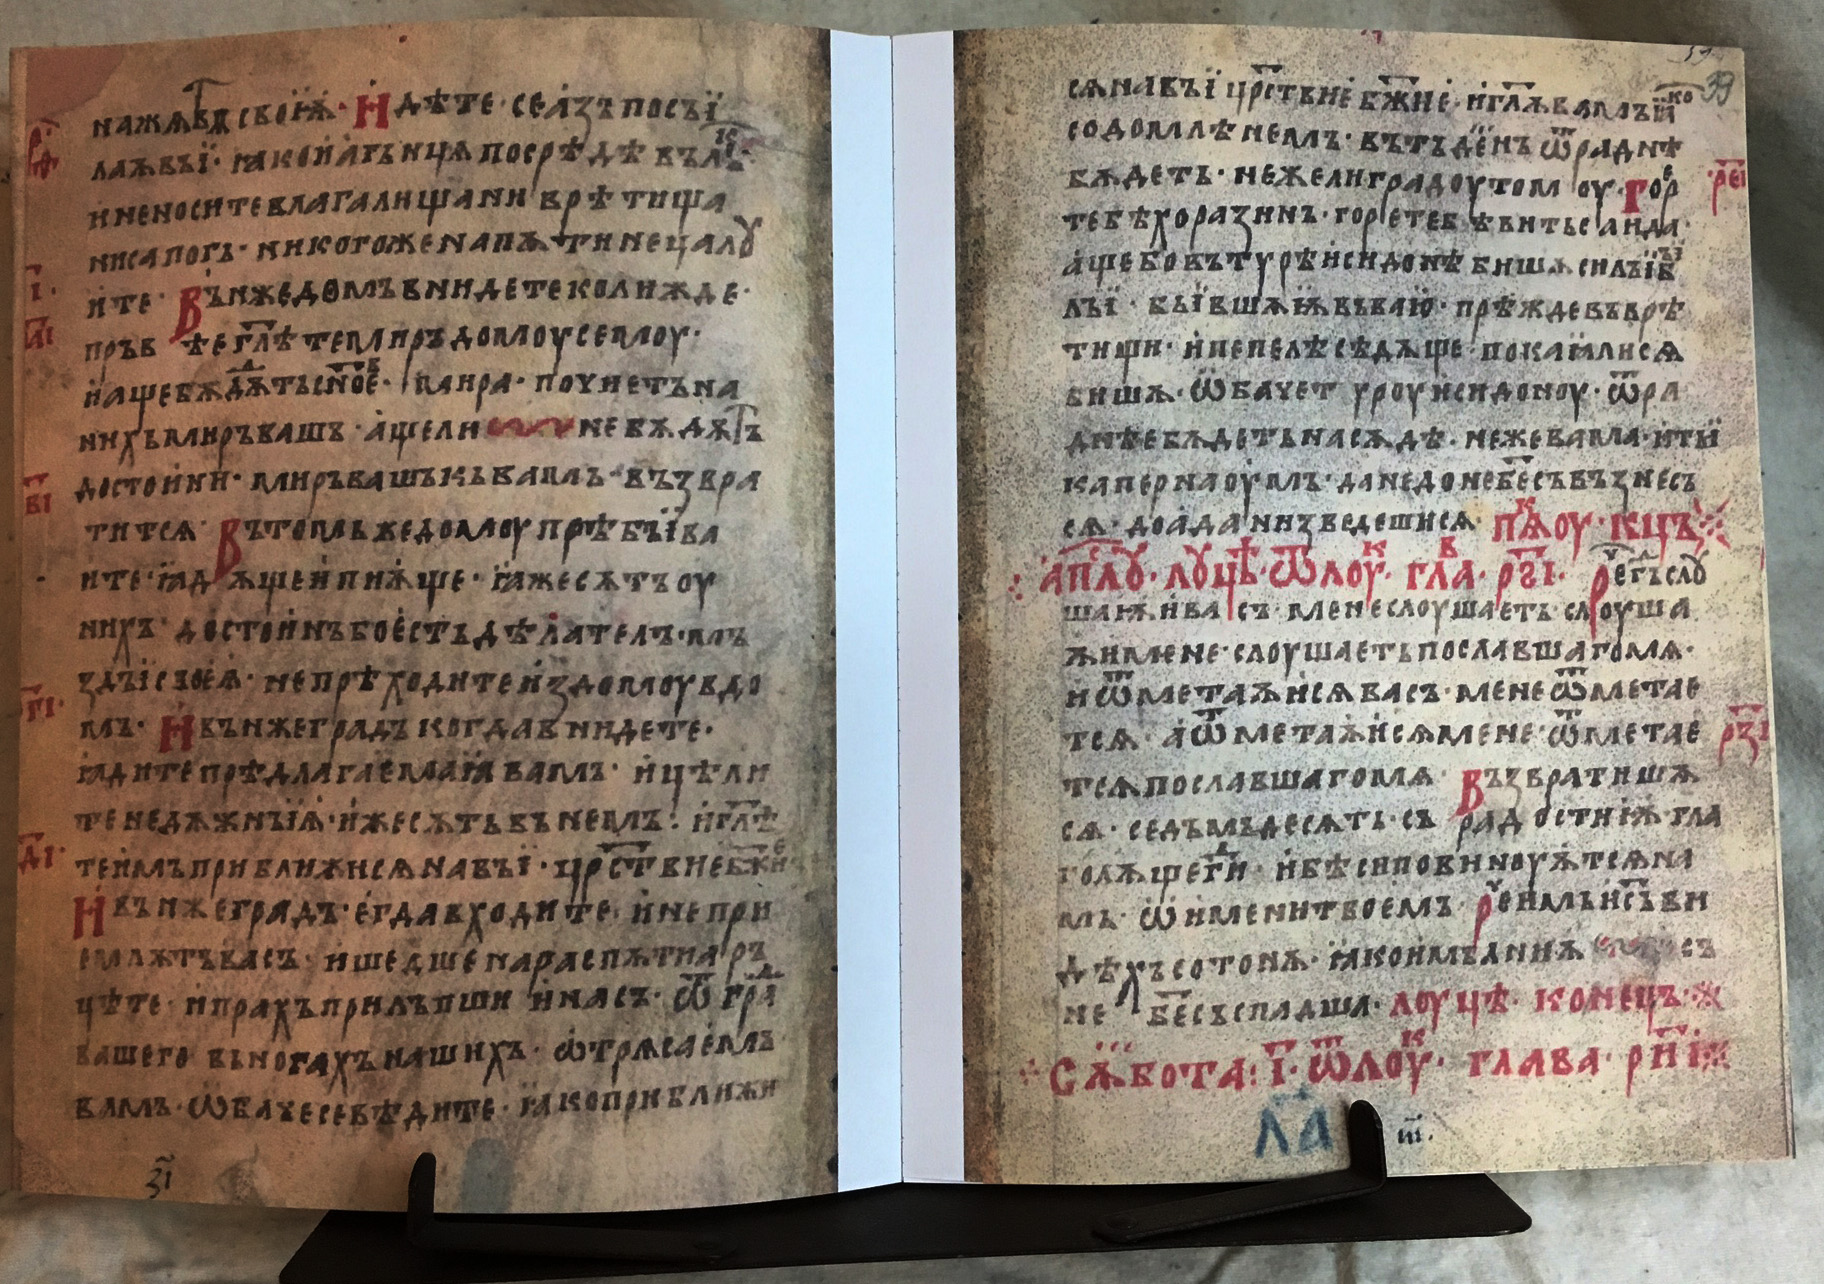 на жѧтвѫ своѭ · Идѣте · се азъ посъї
лаѫ въї · ꙗко агньцѧ посрѣдѣ влъкъ ·
и не носите влагалища ни врѣтища
ни сапогъ · никогоже на пѫти не цѣлꙋ
ите · Вън же домъ внидете колижде ·
пръвѣе гл҃ѣте миръ домоу семоу ·
и аще бѫдѫтъ сн҃ове мира · почиетъ на
нихъ миръ вашъ · аще ли не бѫдѫтъ
достоини · миръ вашъ къ вамъ възвра
титсѧ · Въ томъ же домоу прѣбъїва
ите · ꙗдѫще и пиѫще · ꙗже сѫтъ оу
нихъ · достоинъ бо естъ дѣлателъ мъ
здъї своеѧ · не прѣходите из домоу в до
мъ · И вън же градъ когда внидете ·
ꙗдите прѣдлагаемаꙗ вамъ · и цѣли
те недѫжнъїѧ · иже сѫтъ въ немъ · и гл҃ѣ
те имъ приближисѧ на въї · црс҃твие бж҃ие
И вън же градъ · егда входите · и не при
емлѫтъ васъ · ишедше на распѫтиа
цѣте · и прахъ прилъпши и насъ · ѿ града
вашего въ ногахъ нашихъ · ѡтрѧсаемъ
вамъ · ѡбаче се вѣдите · ꙗко приближи
з҃і
сѧ на въї црс҃твие бж҃ие · и гл҃ѫ вамъ ꙗко
содомлѣнемъ · въ тъ день ѿраднѣ
бѫдетъ · неже ли градоу томоу · Горе
тебѣ хоразинъ · горе тебѣ витьсаида ·
аще бо въ турѣ и сидонѣ бишѫ силъї б
лъї · бъївшѫѧ въ ваю · прѣжде въ врѣ
тищи · и пепелѣ сѣдѧще · покаꙗлисѧ
бишѫ · ѡбаче туроу и сидоноу · ѿра
днѣе бѫдетъ на сѫдѣ · неже вама · и тъї
капернаоумъ · да не до небесъ възнес
сѧ · до ада низведешисѧ · пѧ҃коу · кцъ
апс҃лꙋ · лꙋцѣ · ѿ лоук · глав · рг҃і · Рече гъ слꙋ
шаѧи васъ · мене слоушаетъ · слоуша
ѫи мене · слоушаетъ пославшаго мѧ ·
и ѿметаѫисѧ васъ · мене ѿметае
тсѧ · а ѿметаѫисѧ мене · ѿметае
тсѧ пославшаго мѧ · Възвратишѫ
сѧ · седъмъдесѧтъ · съ радостиѭ · гла
голѫще ги · и бѣси повиноуѫтсѧ на
мъ · ѡ имени твоемъ · Рече имъ ис҃ъ ви
дѣхъ сотонѫ · ꙗко и мълниѫ съ
не бесъ спадша · лоуцѣ · конецъ · ж
Сѫбота : і҃ · ѿ лоук · глава · ри҃і ·
ла